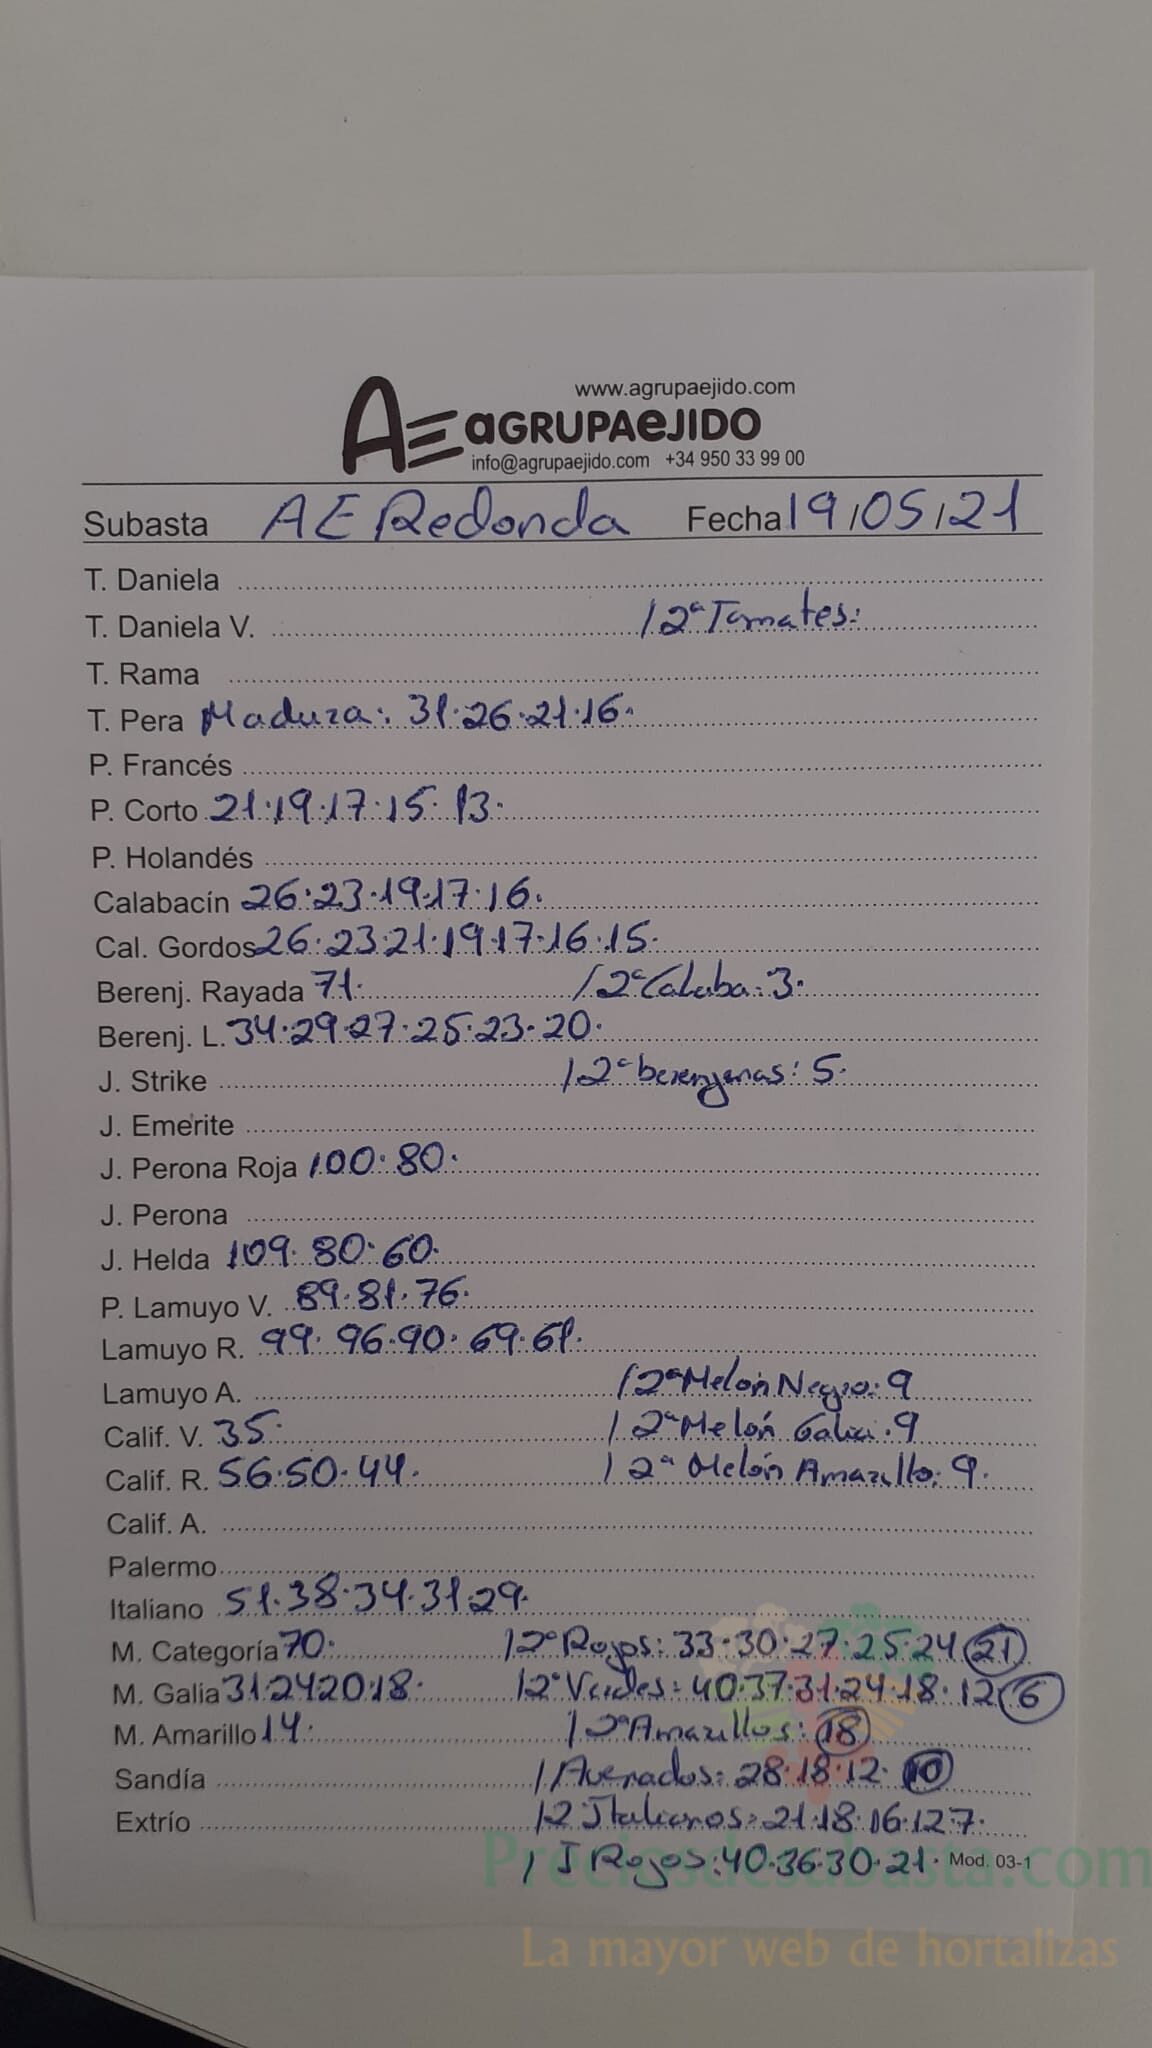 www.agrupaejido.com
AE aGRUPAeJIDO
info@agrupaejido.com +34 950 33 99 00
Subasta AE Redonda Fecha 19/05/21
T. Daniela
T. Daniela V. / 2ª Tomates:
T. Rama
T. Pera Madura: 31.26.21.16.
P. Francés
P. Corto 21.19.17.15.13.
P. Holandés
Calabacín 26.23.19.17.16.
Cal. Gordos 26.23.21.19.17.16.15.
Berenj. Rayada 71. / 2ª Calaba: 3.
Berenj. L. 34.29.27.25.23.20.
J. Strike / 2ª berenjenas: 5.
J. Emerite
J. Perona Roja 100.80.
J. Perona
J. Helda 109.80.60.
P. Lamuyo V. 89.81.76.
Lamuyo R. 99.96.90.69.61.
Lamuyo A. / 2ª Melón Negro: 9
Calif. V. 35. / 2ª Melón Galia: 9
Calif. R. 56.50.44. / 2ª Melón Amarillo: 9.
Calif. A.
Palermo
Italiano 51.38.34.31.29.
M. Categoría 70. / 2ª Rojos: 33.30.27.25.24 21
M. Galia 31.24.20.18. / 2ª Verdes: 40.37.31.24.18.12 6
M. Amarillo 14. / 2ª Amarillos: 18
Sandía / Averados: 28.18.12. 10
Extrío / 2 Italianos: 21.18.16.12.7.
/ I Rojos: 40.36.30.21. Mod. 03-1
Preciosdesubasta.com
La mayor web de hortalizas